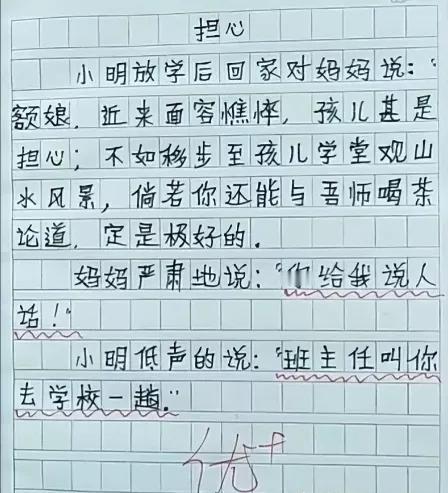 担心
小明放学后回家对妈妈说："
额娘，近来面容憔悴，孩儿甚是
担心；不如移步至孩儿学堂观山
水风景，倘若你还能与吾师喝茶
论道，定是极好的。
妈妈严肃地说："你给我说人
话！"
小明低声的说："班主任叫你
去学校一趟。"
优+